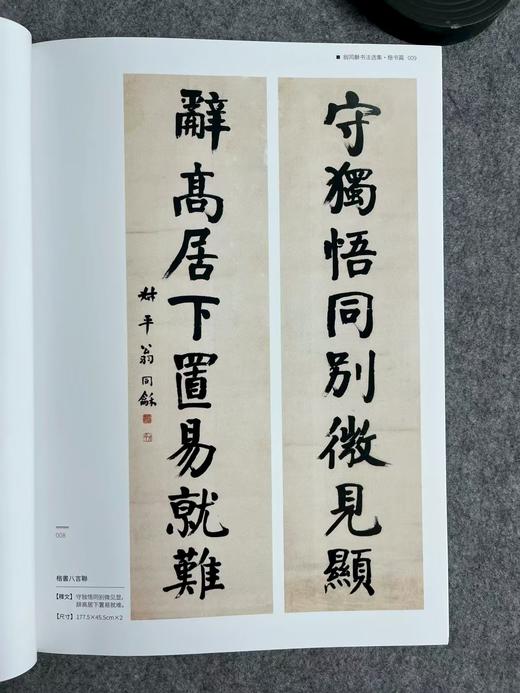 ■ 翁同龢书法选集·楷书篇 009
守獨悟同別微見顯
辭高居下置易就難
叔平翁同龢
008
楷書八言聯
【釋文】守独悟同别微见显，
辞高居下置易就难。
【尺寸】177.5×45.5cm×2